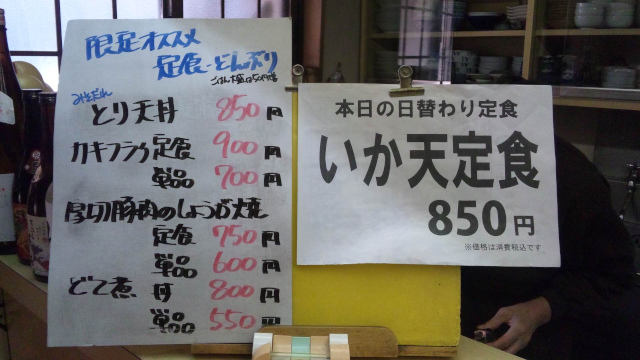 限定オススメ
定食・どんぶり
ごはん大盛は50円増
みそだれ
とり天丼 850円
カキフライ定食 900円
単品 700円
厚切豚肉のしょうが焼
定食 750円
単品 600円
どて煮 丼 800円
単品 550円
本日の日替わり定食
いか天定食
850円
※価格は消費税込です